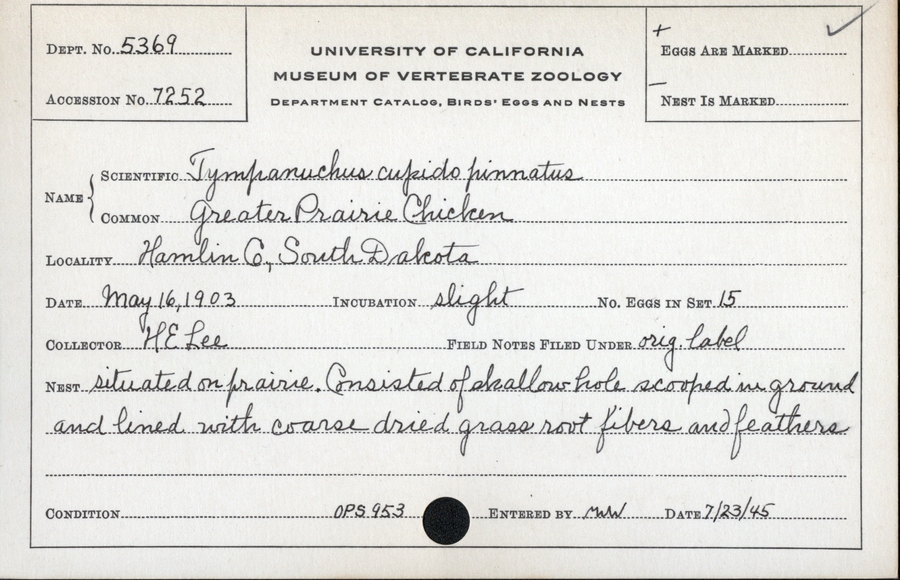 Dept. No. 5369
Accession No. 7252
UNIVERSITY OF CALIFORNIA
MUSEUM OF VERTEBRATE ZOOLOGY
Department Catalog, Birds' Eggs and Nests
+ Eggs Are Marked ✓
– Nest Is Marked
Name { Scientific Tympanuchus cupido pinnatus
Common Greater Prairie Chicken
Locality Hamlin Co, South Dakota
Date May 16, 1903 Incubation slight No. Eggs in Set 15
Collector H E Lee Field Notes Filed Under orig. label
Nest situated on prairie. Consisted of shallow hole scooped in ground
and lined with coarse dried grass root fibers and feathers
Condition OPS 953 Entered by MWW Date 7/23/45